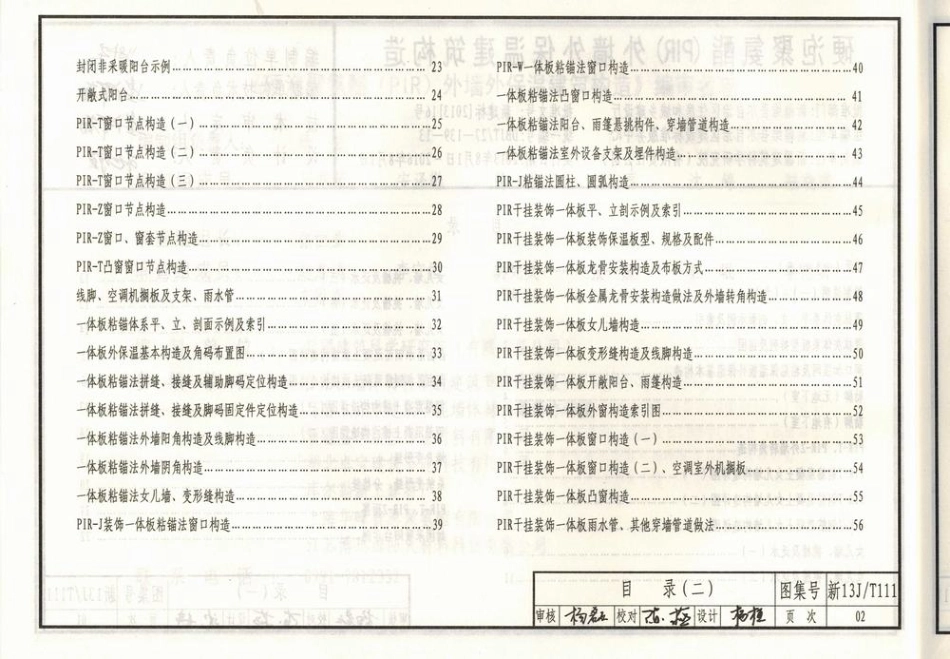 封闭非采暖阳台示例……23
开敞式阳台……24
PIR-T窗口节点构造(一)……25
PIR-T窗口节点构造(二)……26
PIR-T窗口节点构造(三)……27
PIR-Z窗口节点构造……28
PIR-Z窗口、窗套节点构造……29
PIR-T凸窗窗口节点构造……30
线脚、空调机搁板及支架、雨水管……31
一体板粘锚体系平、立、剖面示例及索引……32
一体板外保温基本构造及角码布置图……33
一体板粘锚法拼缝、接缝及辅助脚码定位构造……34
一体板粘锚法拼缝、接缝及脚码固定件定位构造……35
一体板粘锚法外墙阳角构造及线脚构造……36
一体板粘锚法外墙阴角构造……37
一体板粘锚法女儿墙、变形缝构造……38
PIR-J装饰一体板粘锚法窗口构造……39
PIR-W一体板粘锚法窗口构造……40
一体板粘锚法凸窗口构造……41
一体板粘锚法阳台、雨篷悬挑构件、穿墙管道构造……42
一体板粘锚法室外设备支架及埋件构造……43
PIR-J粘锚法圆柱、圆弧构造……44
PIR干挂装饰一体板平、立剖示例及索引……45
PIR干挂装饰一体板装饰保温板型、规格及配件……46
PIR干挂装饰一体板龙骨安装构造及布板方式……47
PIR干挂装饰一体板金属龙骨安装构造做法及外墙转角构造……48
PIR干挂装饰一体板女儿墙构造……49
PIR干挂装饰一体板变形缝构造及线脚构造……50
PIR干挂装饰一体板开敞阳台、雨篷构造……51
PIR干挂装饰一体板外窗构造索引图……52
PIR干挂装饰一体板窗口构造(一)……53
PIR干挂装饰一体板窗口构造(二)、空调室外机搁板……54
PIR干挂装饰一体板凸窗构造……55
PIR干挂装饰一体板雨水管、其他穿墙管道做法……56
目 录(二) 图集号 新13J/T111
审核 校对 设计 页 次 02